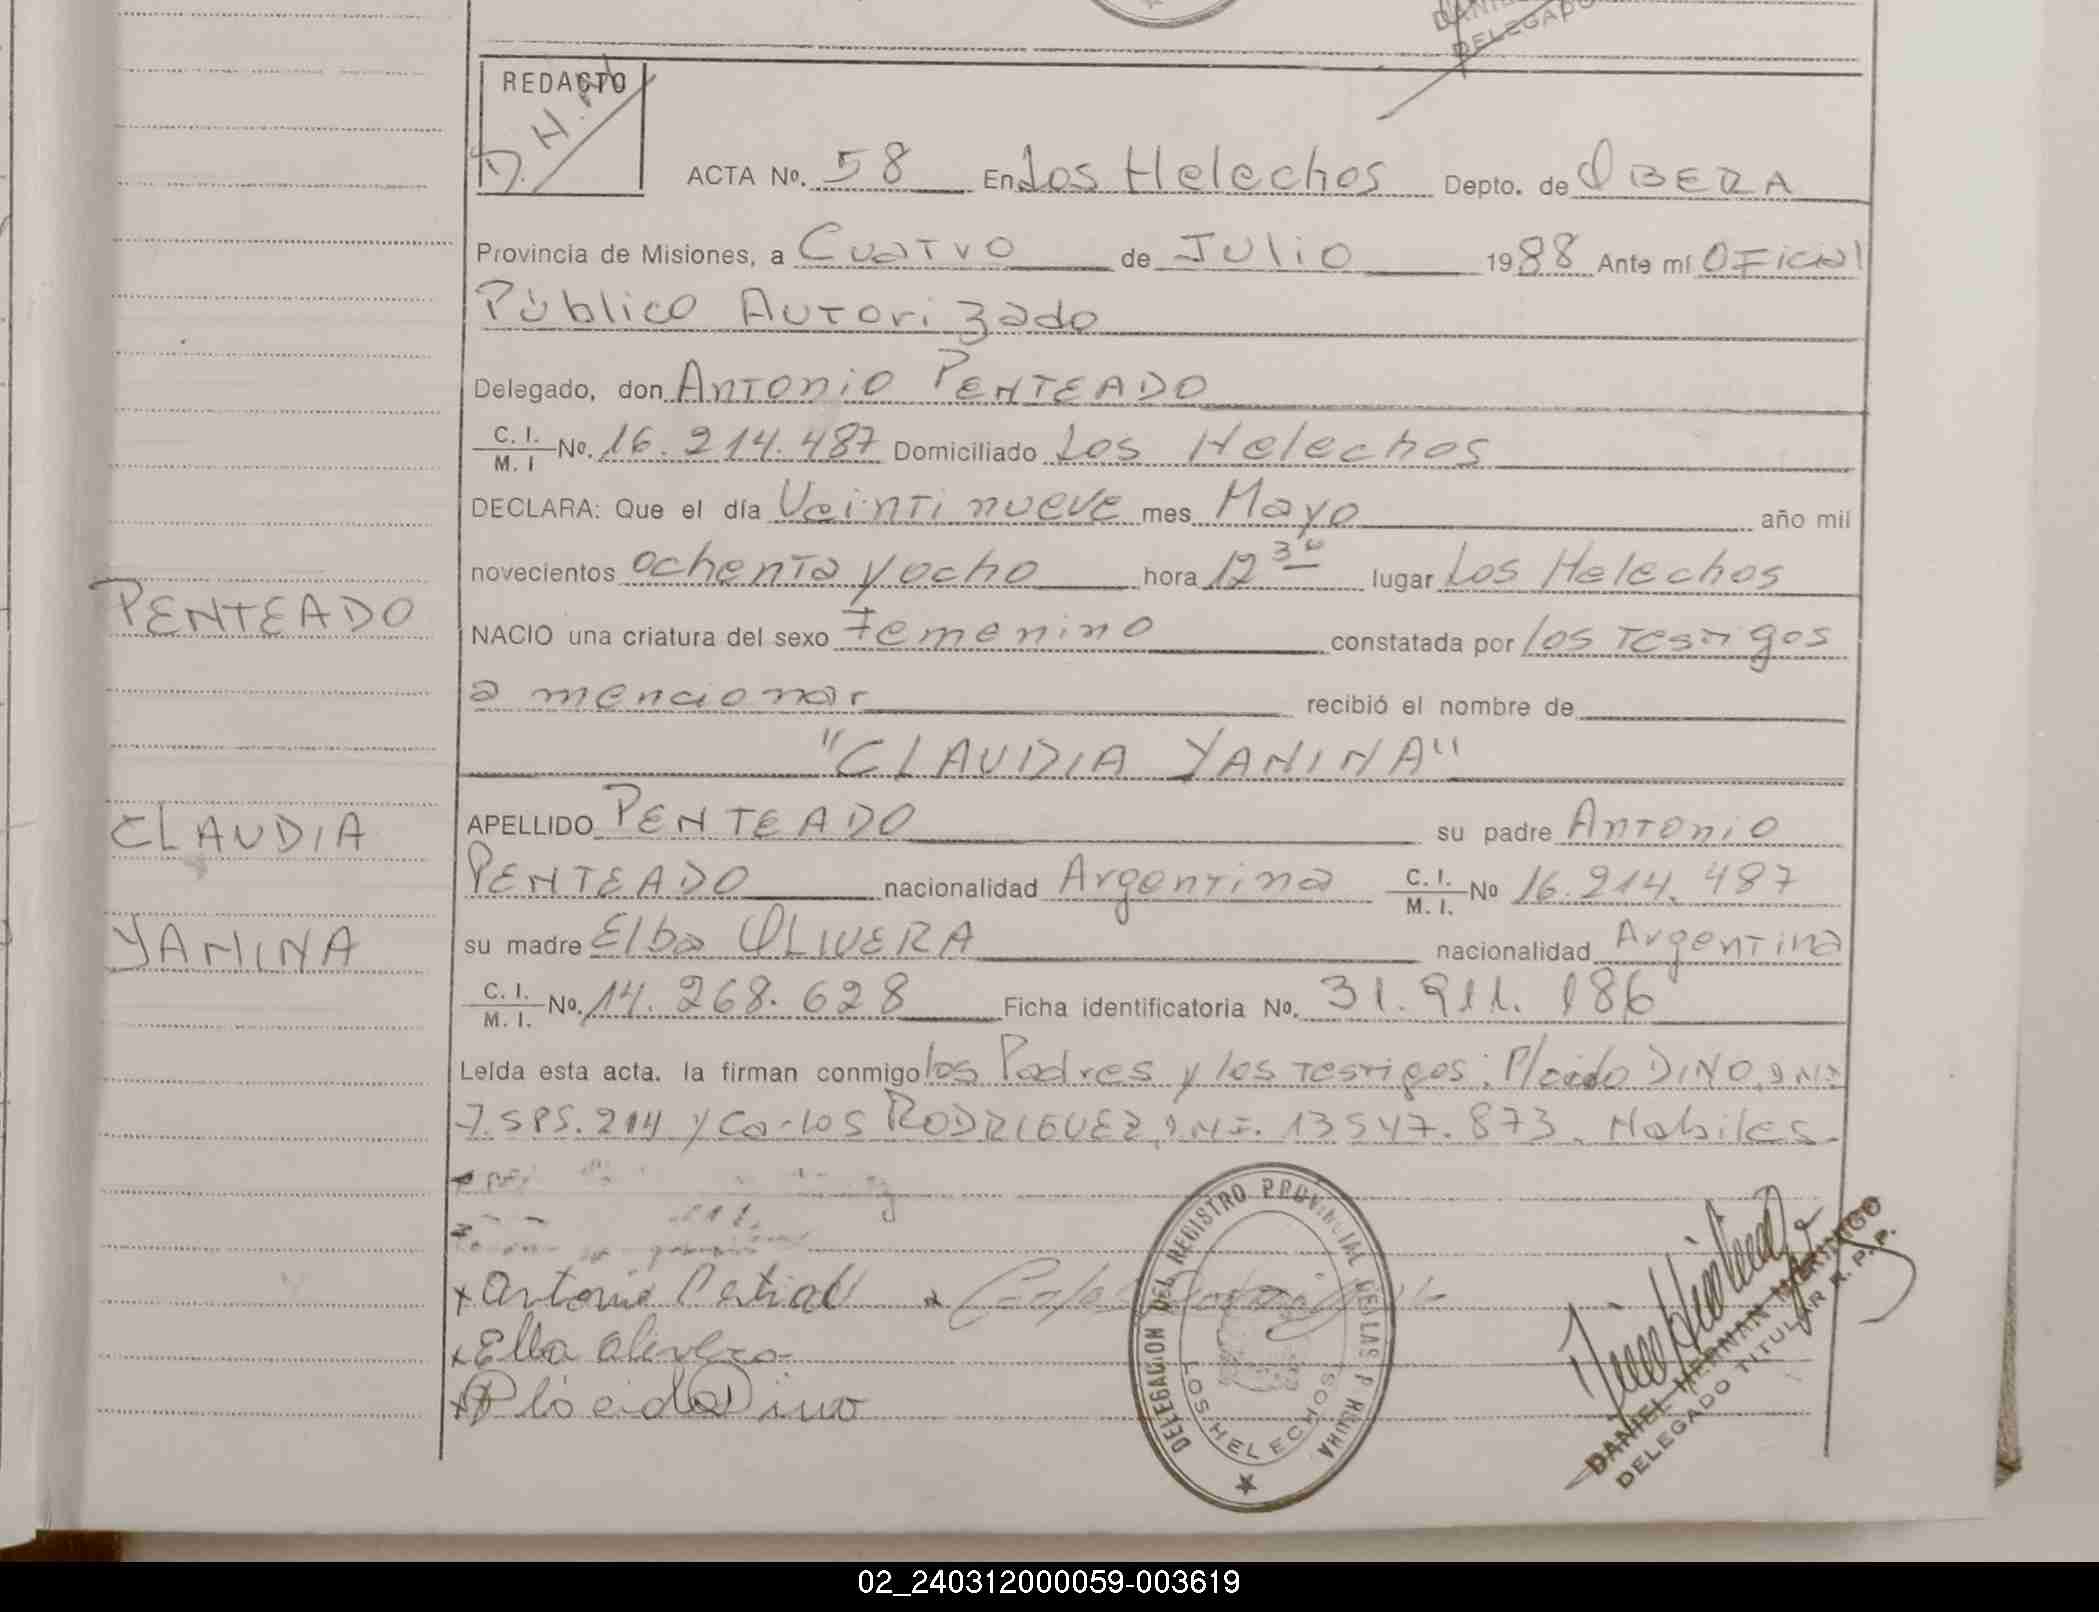 DELEGADO
REDACTO
D. H. M
ACTA No. 58 En Los Helechos Depto. de OBERA
Provincia de Misiones, a Cuatro de Julio 1988 Ante mí OFicial
Público Autorizado
Delegado, don Antonio PENTEADO
C. I. / M. I No. 16.214.487 Domiciliado Los Helechos
DECLARA: Que el día Veinti nueve mes Mayo año mil
novecientos ochenta y ocho hora 12 30 lugar Los Helechos
PENTEADO
NACIO una criatura del sexo Femenino constatada por los Testigos
a mencionar recibió el nombre de
"CLAUDIA YANINA"
CLAUDIA
APELLIDO PENTEADO su padre Antonio
PENTEADO nacionalidad Argentina C. I. / M. I. No 16.214.487
YANINA
su madre Elba OLIVERA nacionalidad Argentina
C. I. / M. I. No. 14.268.628 Ficha identificatoria No. 31.911.186
Leída esta acta. la firman conmigo los Padres y los Testigos: Placido DINO, DNI
7.585.214 y Carlos RODRIGUEZ, DNI. 13547.873. Habiles.
x Antonio x
x Elba Olivera
x Plácido Dino
DELEGACION DEL REGISTRO PROVINCIAL DE LAS P
LOS HELECHOS
DANIEL HERNAN MERINGO
DELEGADO TITULAR R. P. P.
02_240312000059-003619